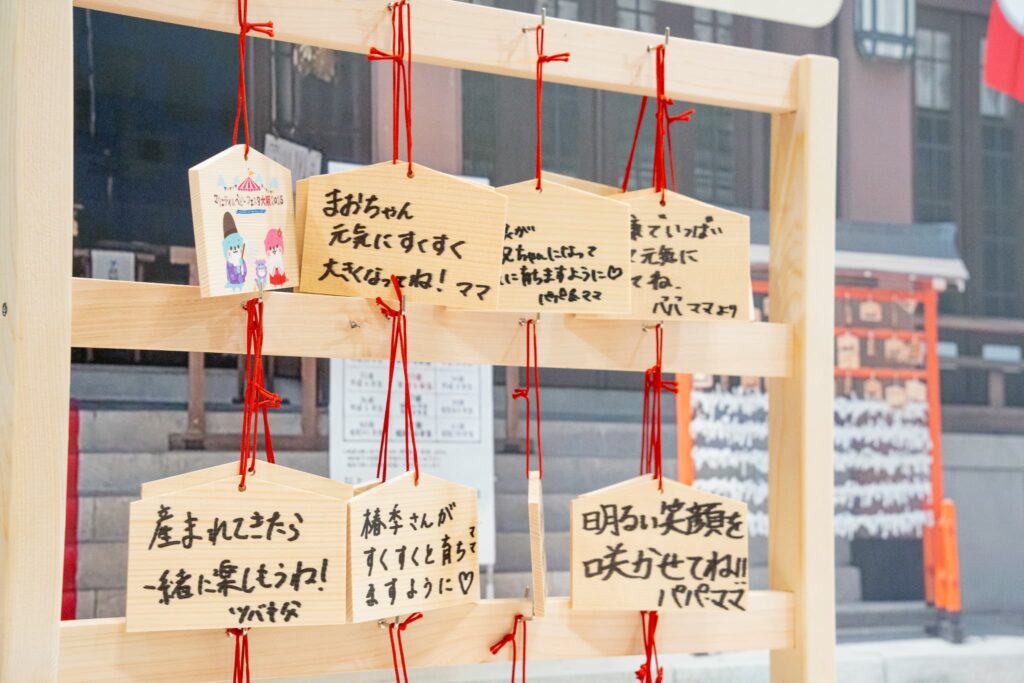 まおちゃん
元気にすくすく
大きくなってね!ママ
が
ちゃんになって
に育ちますように♡
パパ&ママ
でいっぱい
元気に
てね。
パパママより
産まれてきたら
一緒に楽しもうね!
ツバキ父
椿季さんが
すくすくと育ち
ますように♡
明るい笑顔を
咲かせてね!!
パパ・ママ